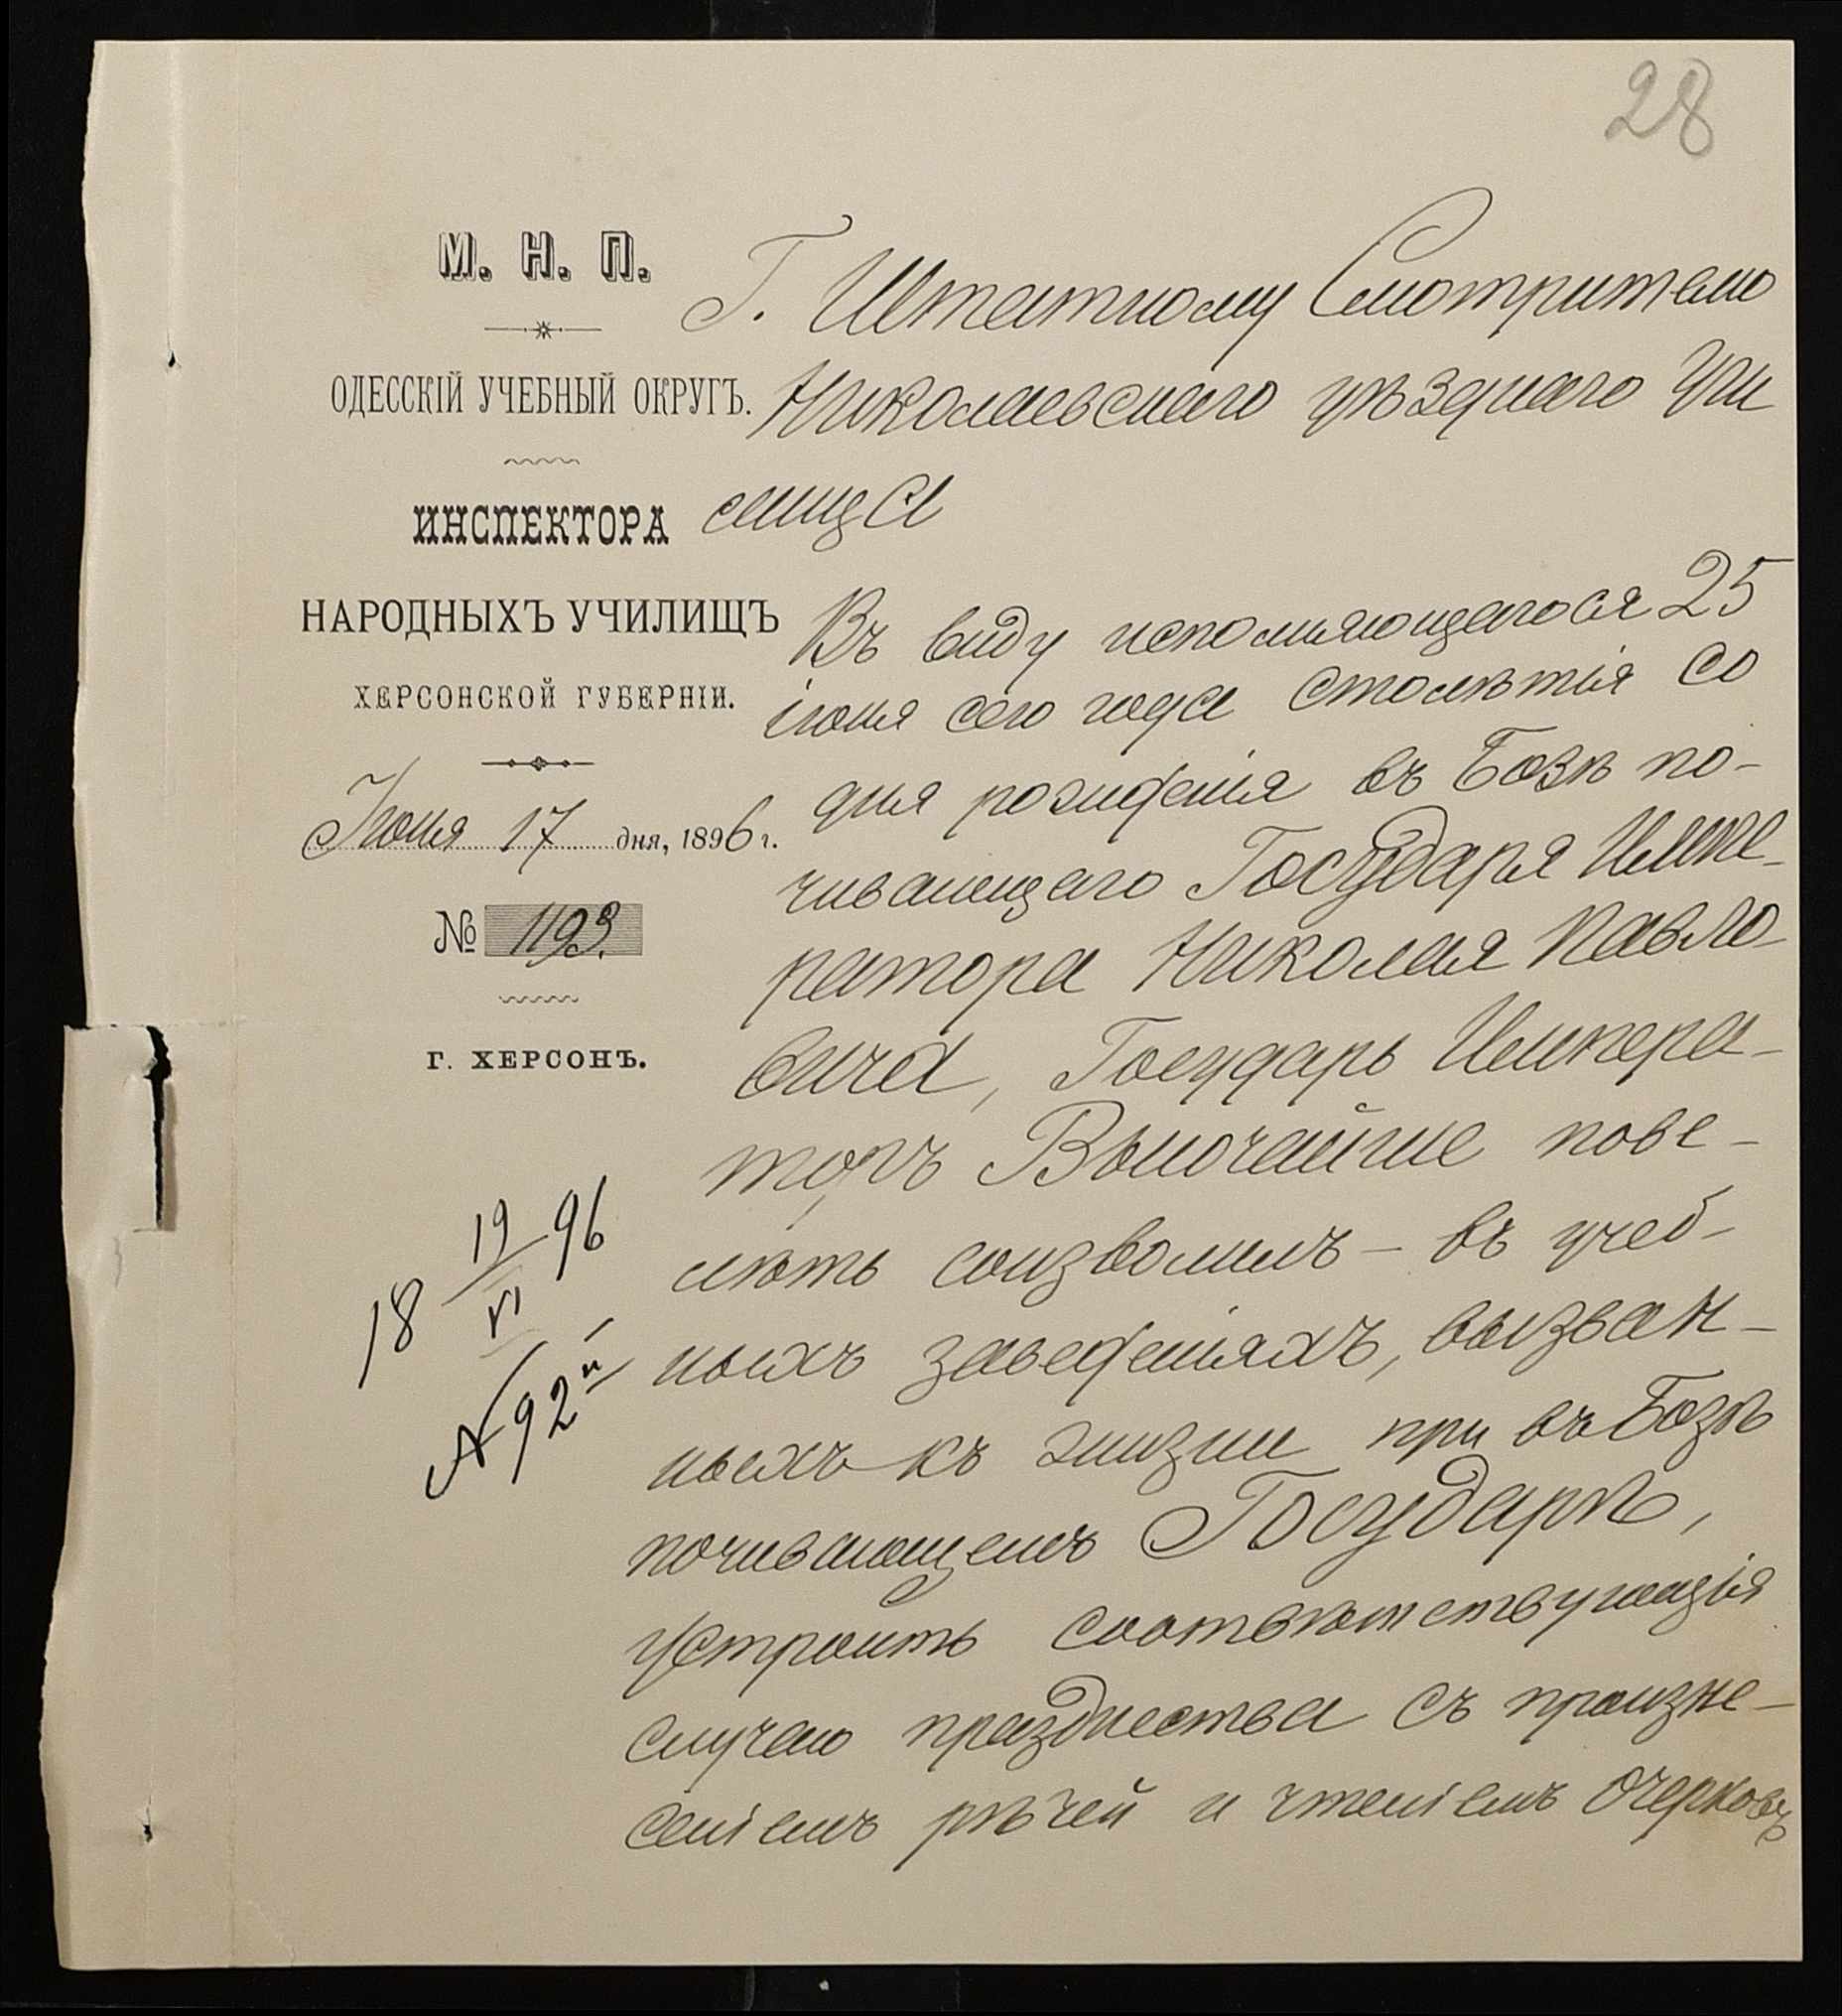 28
М. Н. П.
ОДЕССКІЙ УЧЕБНЫЙ ОКРУГЪ.
ИНСПЕКТОРА
НАРОДНЫХЪ УЧИЛИЩЪ
ХЕРСОНСКОЙ ГУБЕРНІИ.
Іюня 17 дня, 1896 г.
№ 1193.
Г. ХЕРСОНЪ.
18 19/VI 96
№ 92
Г. Штатному Смотрителю
Николаевскаго уѣзднаго учи
лища
Въ виду исполняющагося 25
іюня сего года столѣтія со
дня рожденія въ Бозѣ по-
чивающаго Государя Импе-
ратора Николая Павло-
вича, Государь Импера-
торъ Высочайше пове-
лѣть соизволилъ – въ учеб-
ныхъ заведеніяхъ, вызван-
ныхъ къ жизни при въ Бозѣ
почивающемъ Государѣ,
устроить соотвѣтствующія
случаю празднества съ произне-
сеніемъ рѣчей и чтеніемъ очерковъ